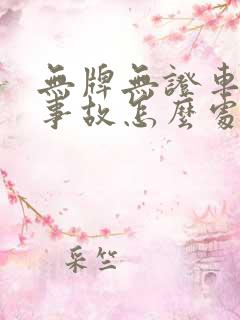 無牌無證車
事故怎麼處
采竺